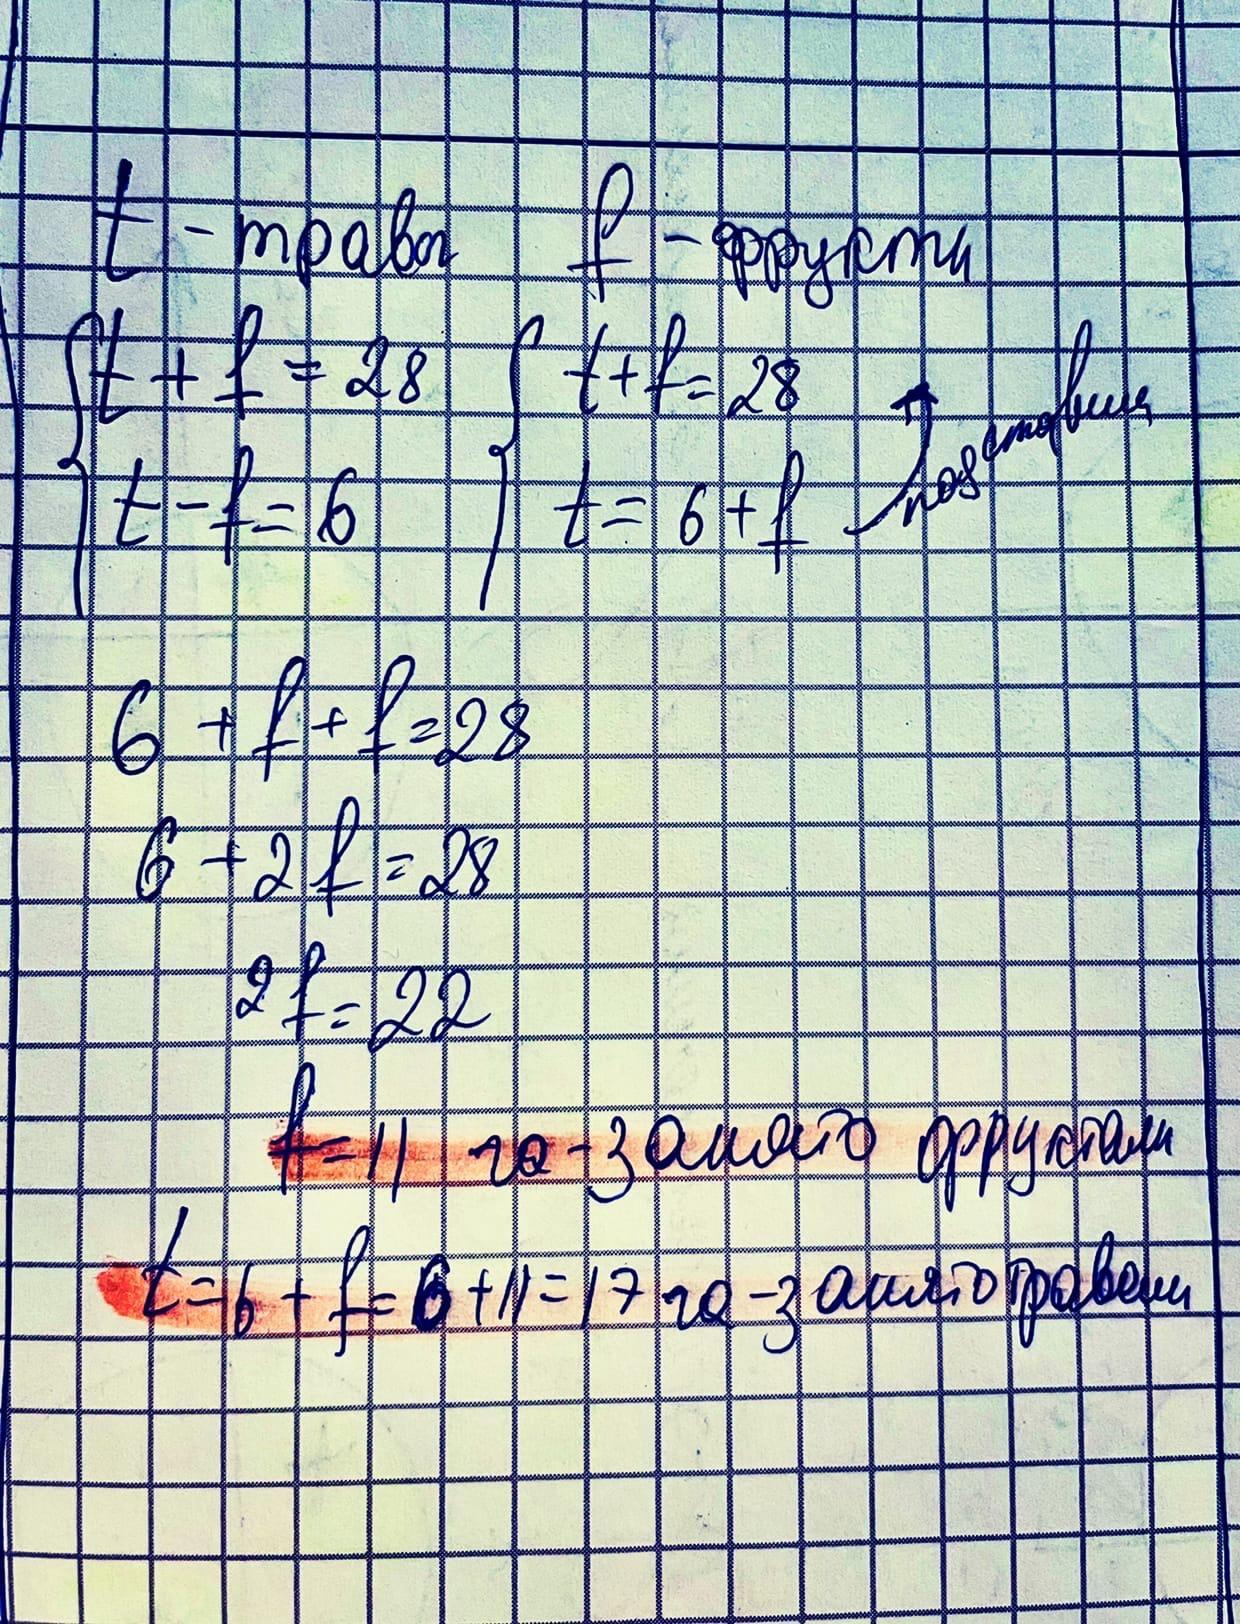 t - трава f - фрукти
t + f = 28 t + f = 28
t - f = 6 t = 6 + f подставим
6 + f + f = 28
6 + 2f = 28
2f = 22
f = 11 га - занято фруктами
t = 6 + f = 6 + 11 = 17 га - занято травами